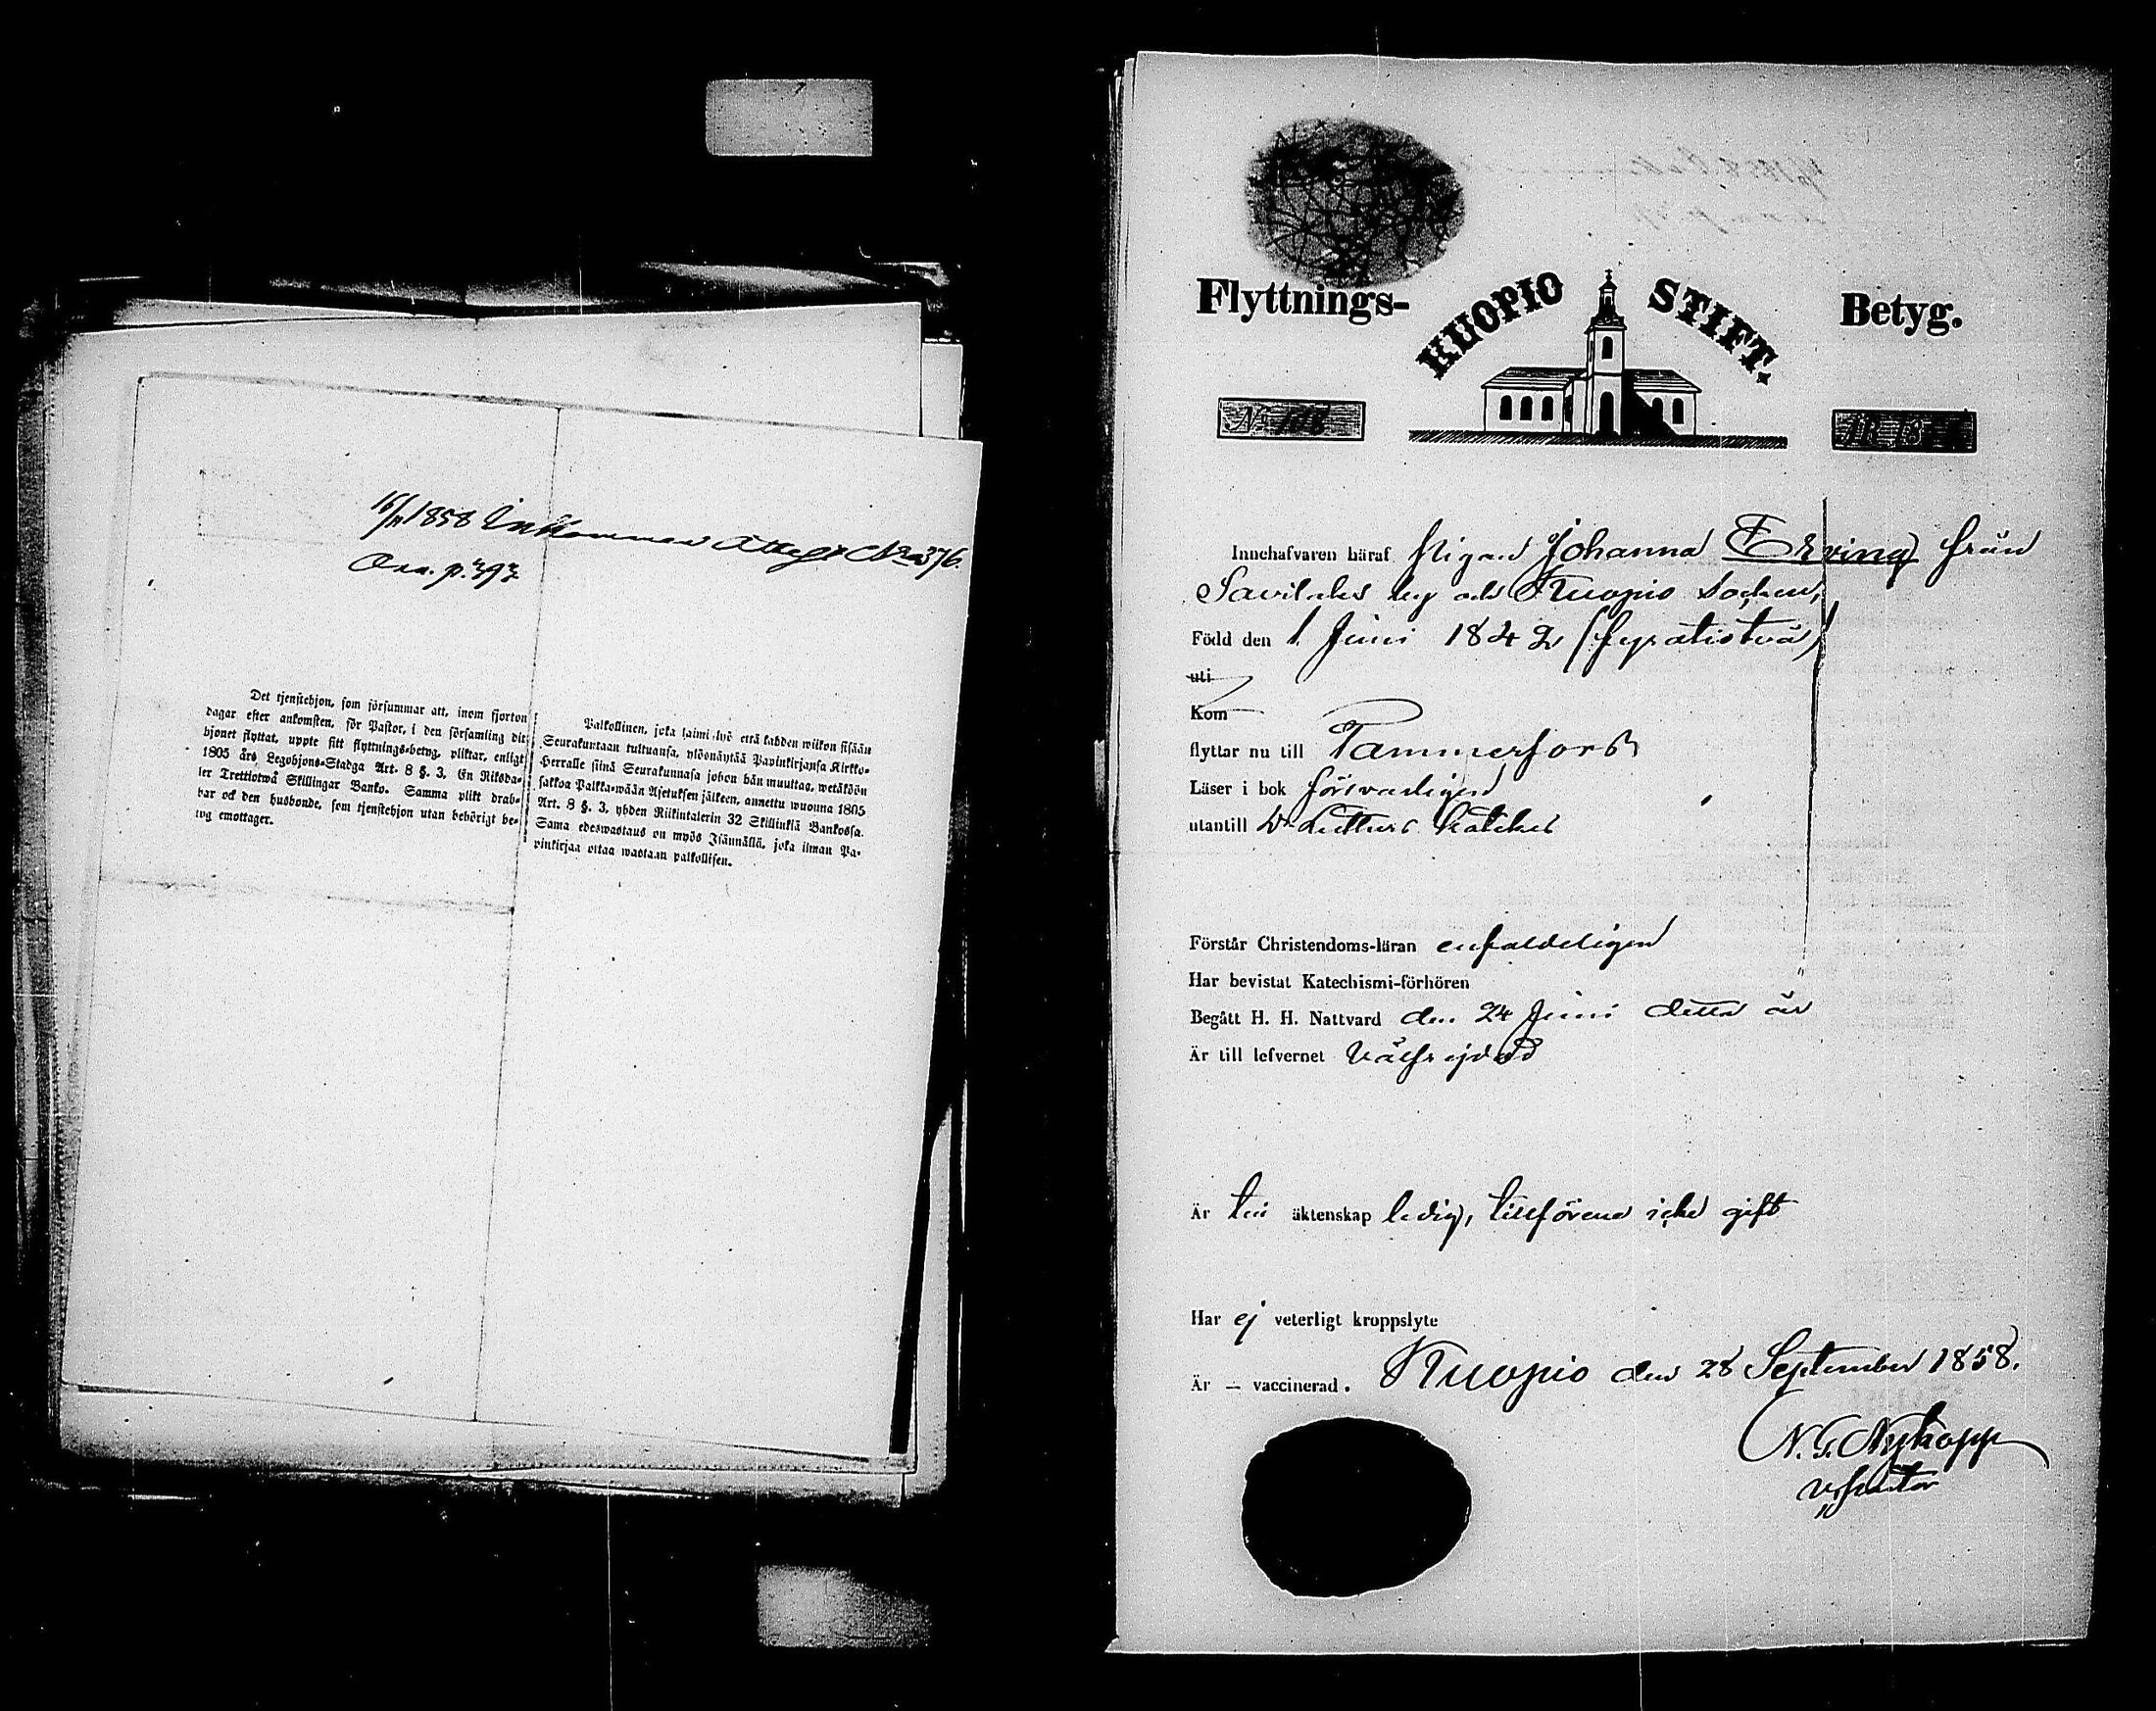 16/11 1858 Inkommen Attest No 376.
p. 393.
Det tjenstehjon, som försummar att, inom fjorton
dagar efter ankomsten, för Pastor, i den församling dit
hjonet flyttat, uppte sitt flyttnings-betyg, pliktar, enligt
1805 års Legohjons-Stadga Art. 8 §. 3, En Riksda-
ler Trettiotwå Skillingar Banko. Samma plikt drab-
bar ock den husbonde, som tjenstehjon utan behörigt be-
tyg emottager.
Palkollinen, joka laimi-lyö että kahden wiikon sisään
Seurakuntaan tultuansa, ylösnäyttää Papinkirjansa Kirkko-
Herralle siinä Seurakunnasa johon hän muuttaa, wetäköön
sakkoa Palkka-wään Asetuksen jälkeen, annettu wuonna 1805
Art. 8 §. 3, yhden Riikintalerin 32 Skillinkiä Bankossa.
Sama edeswastaus on myös Isännällä, joka ilman Pa-
pinkirjaa ottaa wastaan palkollisen.
Flyttnings- KUOPIO STIFT. Betyg.
N:
Innehafvaren häraf Pigan Johanna Erving från
Savilaks by och Kuopio socken,
Född den 1 Juni 1842 (fyratiotvå)
uti
Kom
flyttar nu till Tammerfors
Läser i bok försvarligen
utantill Dr Luthers katekes
Förstår Christendoms-läran enfaldeligen
Har bevistat Katechismi-förhören
Begått H. H. Nattvard den 24 Juni detta år
Är till lefvernet välfrejdad
Är till äktenskap ledig, tillförene icke gift
Har ej veterligt kroppslyte
Är – vaccinerad. Kuopio den 28 September 1858.
N. G. Nykopp